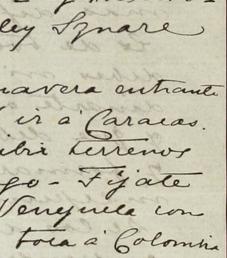 ley Square
navera entrante
ir á Caracas.
ibir terrenos
go - Fíjate
Venezuela con
toca á Colombia